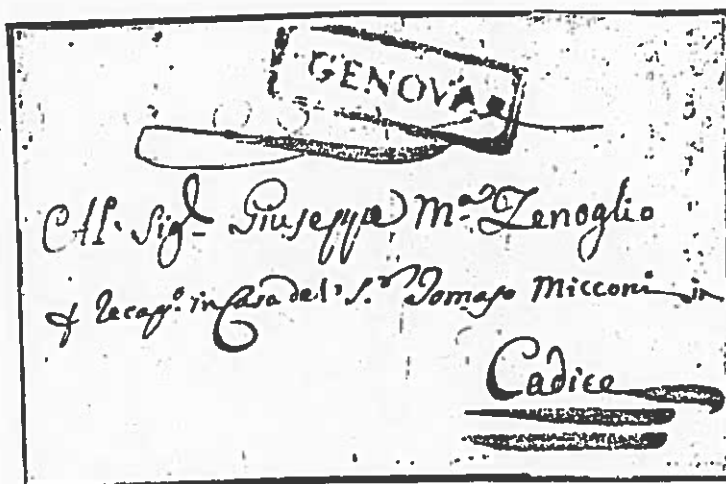 GENOVA
All. Sig.r Giuseppe M.a Zenoglio
p Recap.o in Casa del S.r Tomaso Micconi in
Cadice